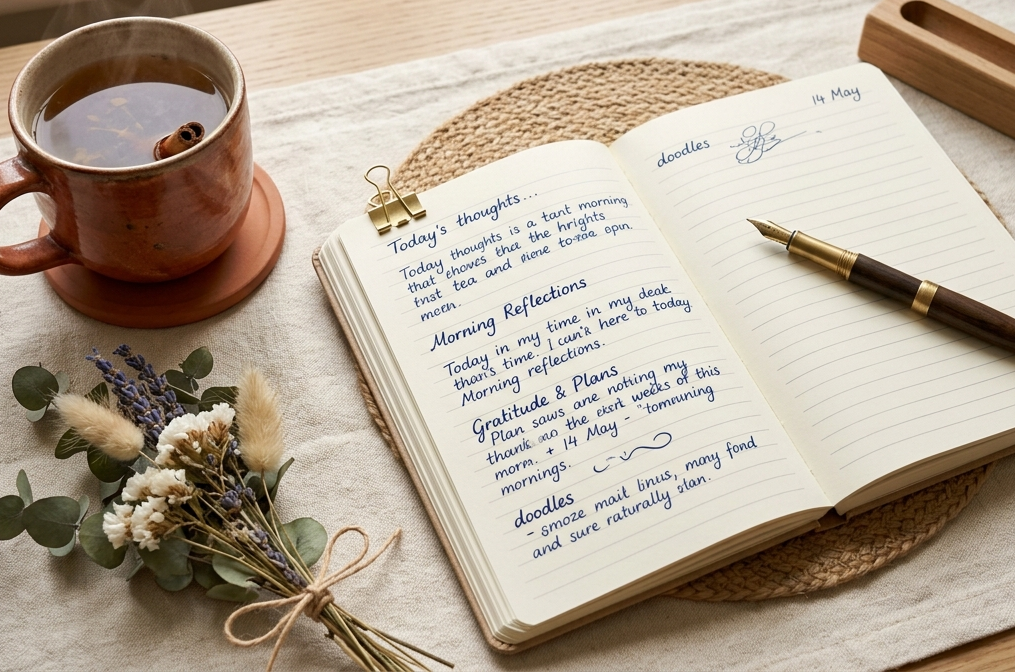 Today's thoughts...
Today thoughts is a tant morning
that the hrights
tea and
Morning Reflections
Today in my time in my deak
time, I here to today
Morning reflections.
Gratitude & Plans
Plan saws are notting my
the weeks of this
+ 14 May - "tomeuning
mornings.
doodles
- smoze mait linus, many fond
and sure raturally
14 May
doodles